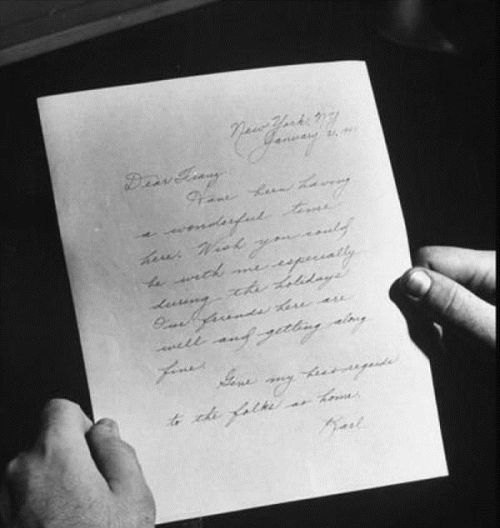 New York, NY
January 2,
Dear Franz,
Have been having
a wonderful time
here. Wish you could
be with me especially
during the holidays
Our friends here are
well and getting along
fine.
Give my best regards
to the folks at home.
Karl